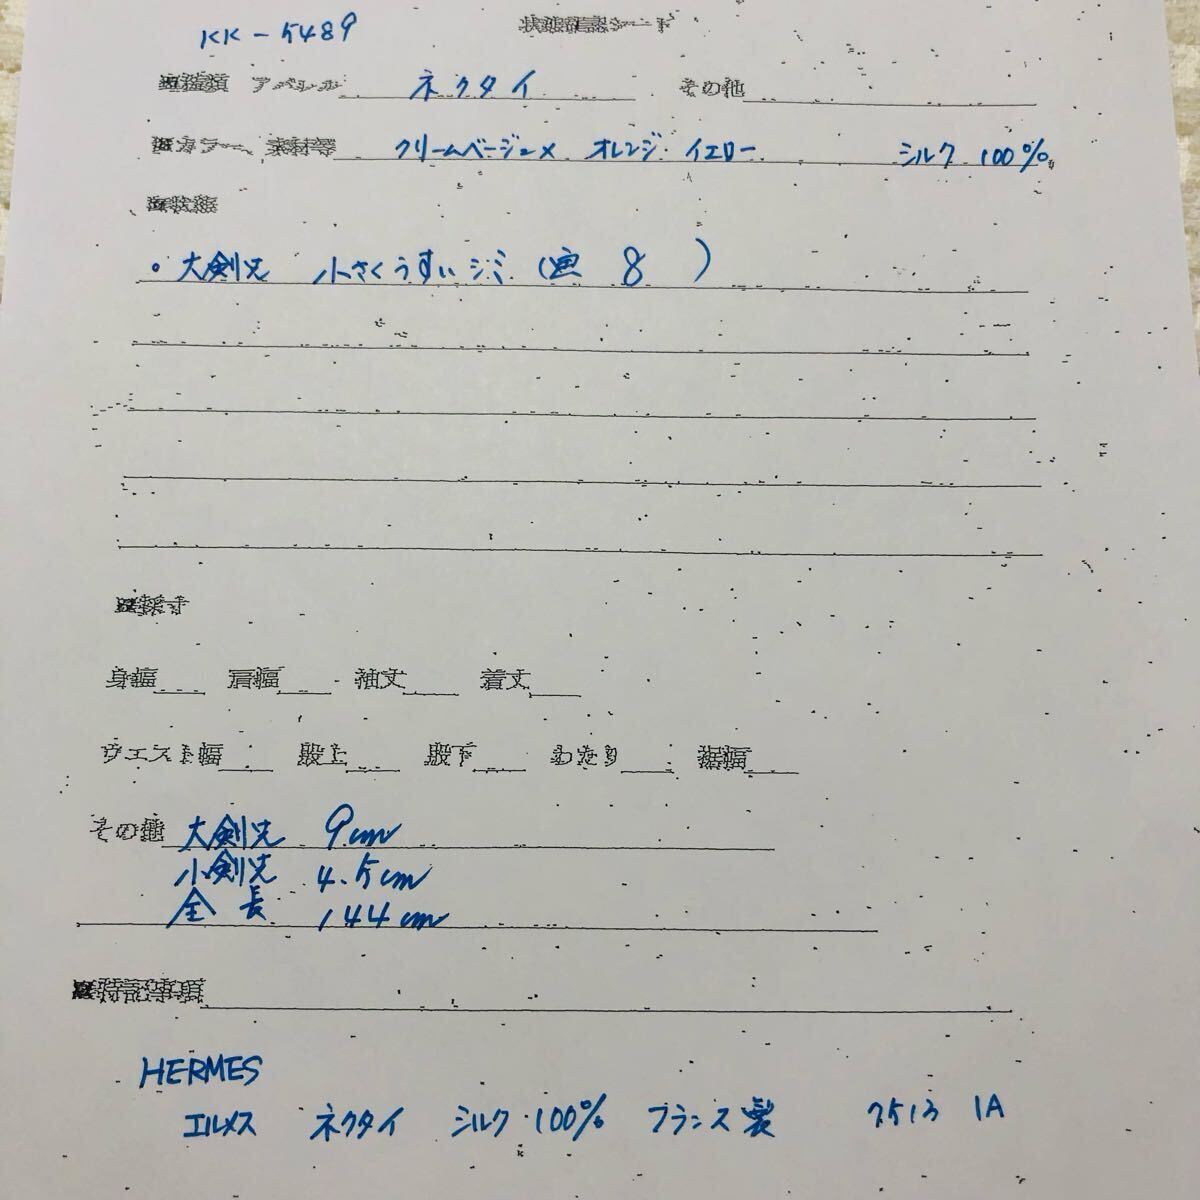 KK-5489 状態確認シート
■種類 アパレル ネクタイ その他
■カラー、素材等 クリームベージュ× オレンジ・イエロー シルク 100%
■状態
。大剣先 小さくうすいシミ (画 8 )
■採寸
身幅 肩幅 袖丈 着丈
ウエスト幅 股上 股下 わたり 裾幅
その他 大剣先 9cm
小剣先 4.5cm
全長 144cm
■特記事項
HERMES
エルメス ネクタイ シルク 100% フランス製 1A